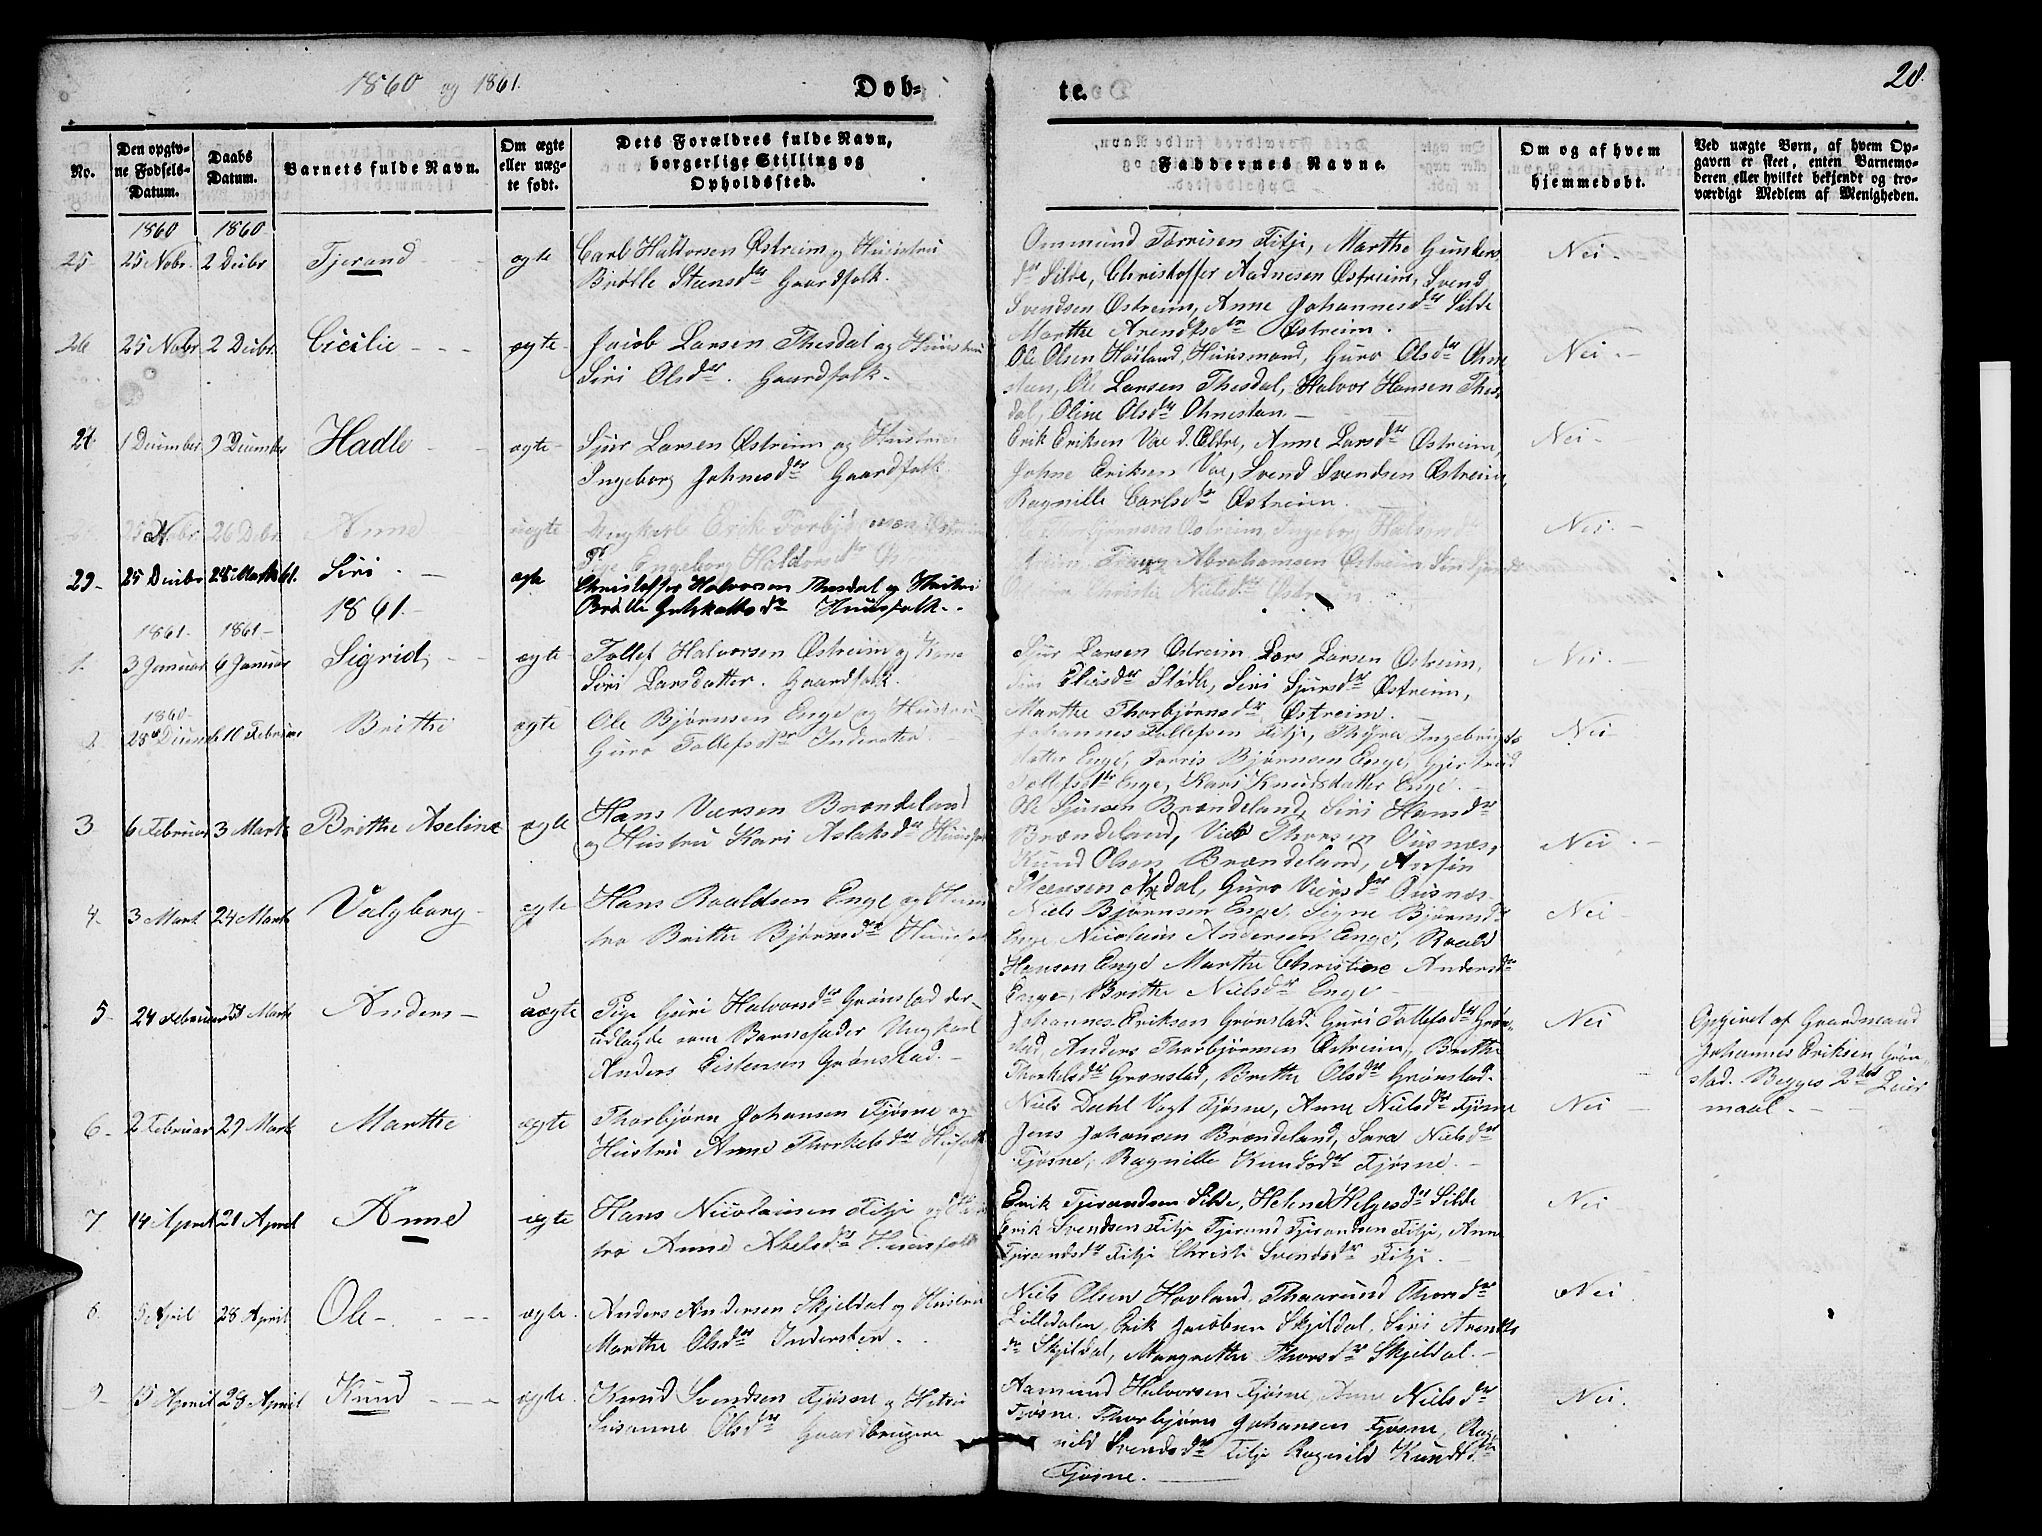 1860 og 1861.
Døb-
te.
28.
No.
Den opgiv-
ne Fødsels-
Datum.
Daabs
Datum.
Barnets fulde Navn.
Om ægte
eller uæg-
te født.
Dets Forældres fulde Navn,
borgerlige Stilling og
Opholdssted.
Faddernes Navne.
Om og af hvem
hjemmedøbt.
Ved uægte Børn, af hvem Op-
gaven er skeet, enten Barnemo-
deren eller hvilket bekjendt og tro-
værdigt Medlem af Menigheden.
1860 1860
25 25 Nobr. 2 Decbr Tjerand ægte Carl Haldorsen Østreim og Huustru
Britte Steensdtr Gaardfolk.
Ommund Torrisen Fitje, Marthe Gunders
dtr Silde, Christoffer Aadnesen Østreim, Svend
Svendsen Østreim, Anne Johannesdtr Silde
Marthe Arendtsdtr Østreim.
Nei.
26 25 Nobr 2 Decbr. Cicilie ægte Jacob Larsen Thesdal og Huustru
Siri Olsdtr. Gaardfolk.
Ole Olsen Høiland, Huusmand, Guro Olsdtr Ohne
stan, Ole Larsen Thesdal, Halvor Hansen Thes
dal, Oline Olsdtr Ohnestan.
Nei.
27. 1 December 9 December Hadle ægte Sjur Larsen Østreim og Hustru
Ingeborg Johnesdtr Gaardfolk
Erik Eriksen Vae d. Ældre, Anne Larsdtr Østreim,
Johne Eriksen Vae, Svend Svendsen Østreim,
Ragnille Carlsdtr Østreim.
Nei.
25 Nobr 26 Dcbr Anne uægte Ungkarl Erik Torbjørnsen Østreim
Pige Engeborg Haldorsdtr
Abrahamsen Østreim
Christi Nielsdtr Østreim
Nei.
29. 25 Decbr 28 Marts 61. Siri ægte Christoffer Halvorsen Thesdal og Hustru
Britte Godskalksdtr Huusfolk.
1861.
1861. 1861
1. 3 Januar 6 Januar Sigrid ægte Tollef Halvorsen Østreim og Kone
Siri Larsdatter. Gaardfolk.
Sjur Larsen Østreim, Lars Larsen Østreim,
Siri Eliasdtr Stødle, Siri Sjursdtr Østreim,
Marthe Thorbjørnsdtr Østreim.
Nei.
1860
2. 28 Decembr 10 Februar Brithe ægte Ole Bjørnsen Enge og Hustru
Guro Tollefsdtr Inderster
Johannes Tollefsen Fitje, Thyra Ingebrigts
datter Enge, Torris Bjørnsen Enge, Gjertrud
Tollefsdtr Enge, Kari Knudsdatter Enge.
Nei
3 6 Februar 3 Marts Brithe Aseline ægte Hans Viersen Brændeland
og Hustru Kari Aslaksdtr Huusfolk
Ole Sjursen Brændeland, Siri Hansdtr
Brændeland, Vier Thorsen Ousnæs,
Knud Olsen Brændeland,
Steensen Axdal, Guro Viersdtr Ousnæs
Nei.
4. 3 Mart 24 Marts Valgborg ægte Hans Roaldsen Enge og Huus
tro Brithe Bjørnsdtr Huusfolk
Niels Bjørnsen Enge, Signe Bjørnsdtr
Enge Nicolaus Andersen Enge, Roald
Hansen Enge Marthe Christine Andersdtr
Enge, Brithe Nielsdtr Enge
Nei
5. 24 Februar Marts Anders uægte Pige Guri Halvorsdtr Grønstad der
udlagde som Barnefader Ungkarl
Anders Eistensen Grønstad.
Johannes Eriksen Grønstad, Guri Tollefsdtr Grøn-
stad, Anders Thorbjørnsen Østreim, Brithe
Thorkelsdtr Grønstad, Brithe Olsdtr Grønstad.
Nei
Opgivet af Gaardmand
Johannes Eriksen Grøn
stad. Begges 2det Leier
maal.
6. 2 Februar 29 Marts Marthe ægte Thorbjørn Johansen Fjøsne og
Hustru Anne Thorkelsdtr Huusfolk
Niels Dahl Vogt Fjøsne, Anne Nielsdtr Fjøsne
Jens Johansen Brændeland, Sara Nielsdtr
Fjøsne, Ragnille Knudsdtr Fjøsne.
Nei
7 14 April 21 April Anne ægte Hans Nicolaisen Fitje og Hus
tro Anne Abelsdtr Huusfolk
Erik Tjerandsen Silde, Helene Helgesdtr Silde
Erik Svendsen Fitje Tjerand Tjerandsen Fitje, Anne
Tjerandsdtr Fitje Christi Svendsdtr Fitje.
Nei
8. 5 April 28 April Ole ægte. Anders Andersen Skjeldal og Hustru
Marthe Olsdtr Indersten.
Niels Olsen Hovland, Thorsdtr
Lilledalen, Erik Jacobsen Skjeldal, Siri Arendts
dtr Skjeldal, Margrethe Thorsdtr Skjeldal.
Nei
9 15 April 28 April Knud ægte. Knud Svendsen Fjøsne og Hustru
Susanne Olsdtr Gaardbrugere
Aamund Halvorsen Fjøsne, Anne Nielsdtr
Fjøsne. Thorbjørn Johansen Fjøsne, Rag
nild Svendsdtr Fitje Ragnild Knudsdtr
Fjøsne.
Nei.